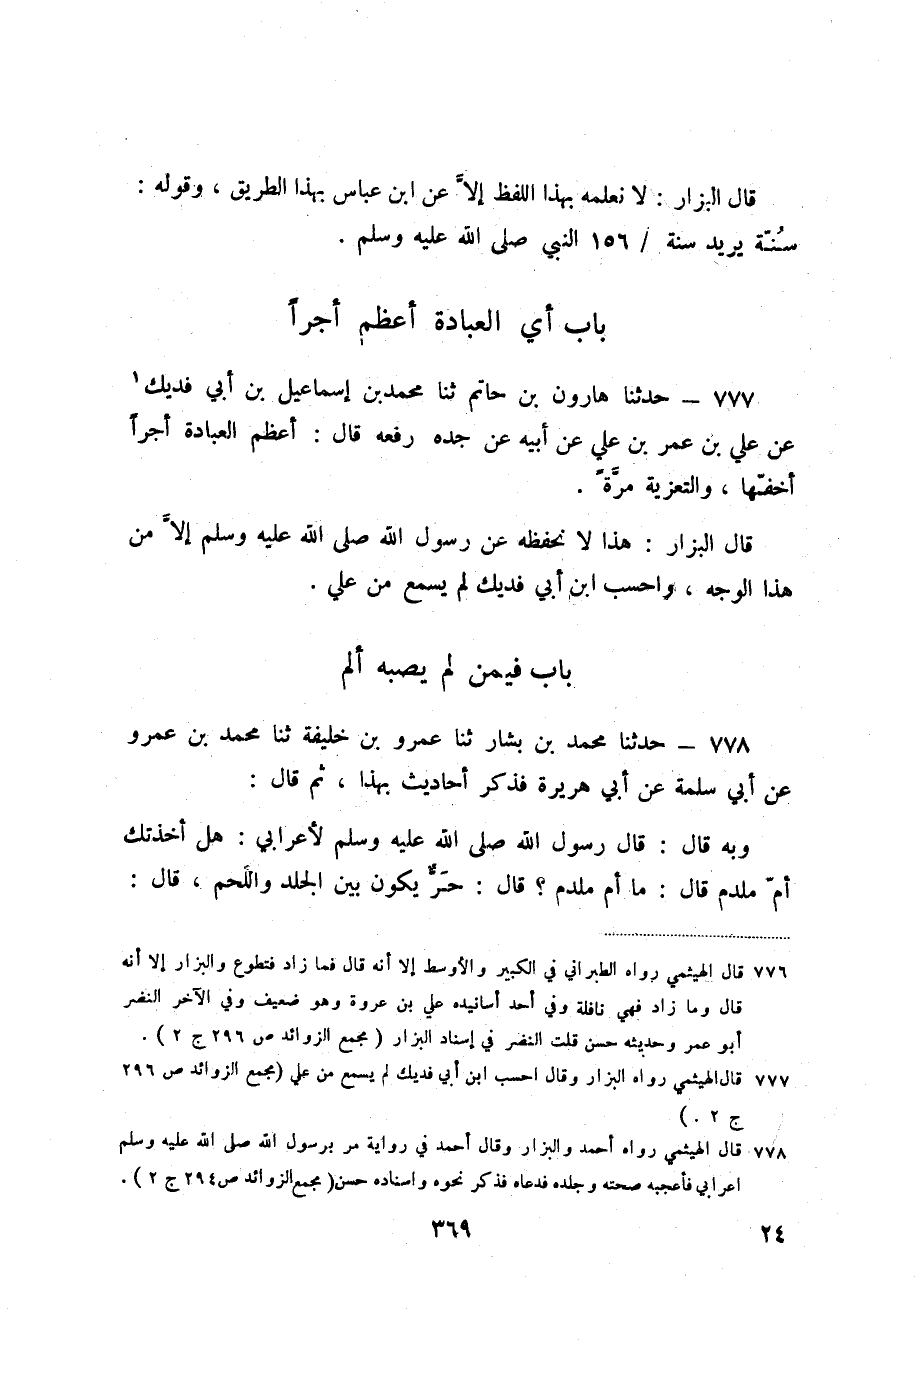 قال البزار : لا نعلمه بهذا اللفظ إلاَّ عن ابن عباس بهذا الطريق ، وقوله :
سُنّة يريد سنة / ١٥٦ النبي صلى الله عليه وسلم .
باب أي العبادة أعظم أجراً
٧٧٧ – حدثنا هارون بن حاتم ثنا محمدبن إسماعيل بن أبي فديك١
عن علي بن عمر بن علي عن أبيه عن جده رفعه قال : أعظم العبادة أجراً
أخفّها ، والتعزية مرَّة .
قال البزار : هذا لا نحفظه عن رسول الله صلى الله عليه وسلم إلاَّ من
هذا الوجه ، واحسب ابن أبي فديك لم يسمع من علي .
باب فيمن لم يصبه ألم
٧٧٨ – حدثنا محمد بن بشار ثنا عمرو بن خليفة ثنا محمد بن عمرو
عن أبي سلمة عن أبي هريرة فذكر أحاديث بهذا ، ثم قال :
وبه قال : قال رسول الله صلى الله عليه وسلم لأعرابي : هل أخذتك
أمّ ملدم قال : ما أم ملدم ؟ قال : حَرٌّ يكون بين الجلد واللّحم ، قال :
٧٧٦ قال الهيثمي رواه الطبراني في الكبير والأوسط إلا أنه قال فما زاد فتطوع والبزار إلا أنه
قال وما زاد فهي نافلة وفي أحد أسانيده علي بن عروة وهو ضعيف وفي الآخر النضر
أبو عمر وحديثه حسن قلت النضر في إسناد البزار ( مجمع الزوائد ص ٢٩٦ ج ٢ ) .
٧٧٧ قال الهيثمي رواه البزار وقال احسب ابن أبي فديك لم يسمع من علي (مجمع الزوائد ص ٢٩٦
ج ٢ . )
٧٧٨ قال الهيثمي رواه أحمد والبزار وقال أحمد في رواية مر برسول الله صلى الله عليه وسلم
اعرابي فأعجبه صحته وجلده فدعاه فذكر نحوه واسناده حسن( مجمع الزوائد ص ٢٩٤ ج ٢ ) .
٢٤ ٣٦٩